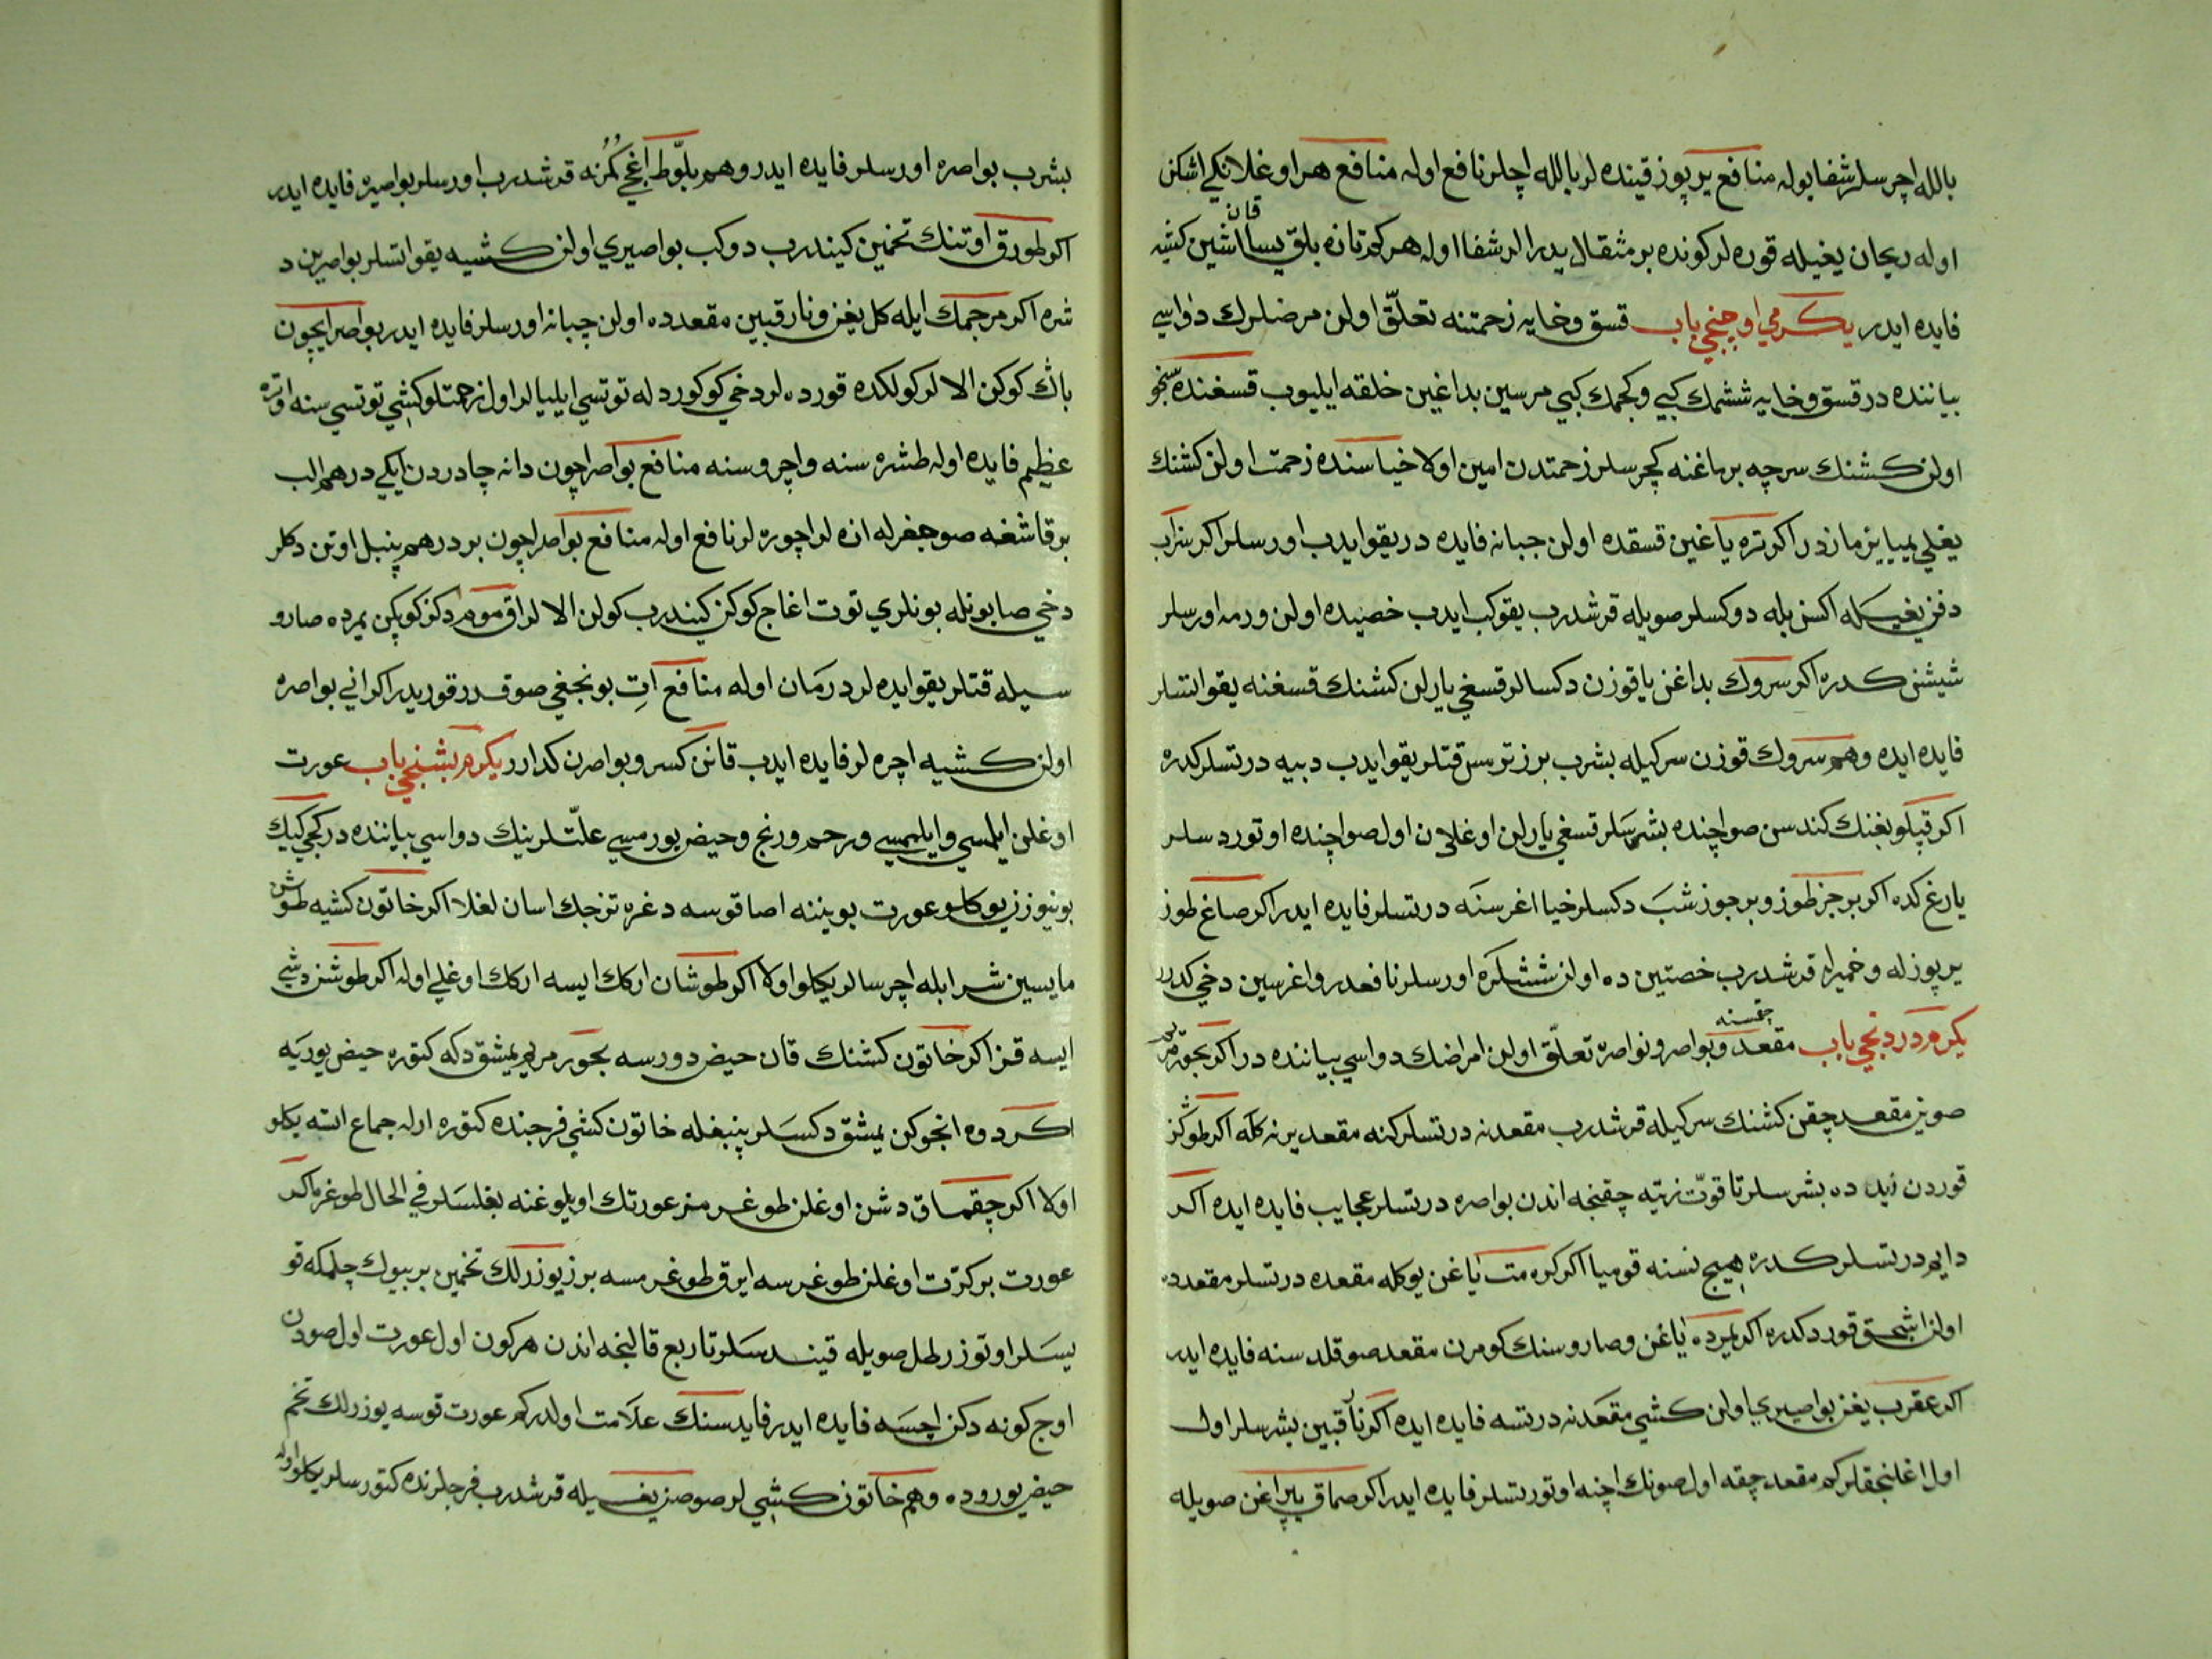 بالله اچرسلر شفا بوله منافع يرپوز قينده لر بالله اچلر نافع اوله منافع هر اوغلانكى اشكن
اوله ريحان يغيله قوره لر كونده بر مثقال يدرالر شفا اوله هر كم تازه بلق يسا قان اشين كشيه
فايده ايدر يكرمي اوچنجي باب قسق وخايه زحمتنه تعلّق اولن مرضلرك دواسي
بياننده در قسق وخايه ششمك كبي وكچمك كبي مرسين بداغين خلقه ايليوب قسغنده
اولن كشنك سرچه برماغنه كچرسلر زحمتدن امين اولا خياسنده زحمت اولن كشنك
يغلي يمياييز مازدر اكر تره ياغين قسقده اولن جبانه فايده در يقو ايدب اورسلر اكر سزاب
دفن يغيله اكسن بله دوكسلر صويله قرشدرب يقوكب ايدب خصيده اولن ورمه اورسلر
شيشن كدره اكر سروك بداغن ياقوزن دكسالر قسغي يارلن كشنك قسغنه يقو ايتسلر
فايده ايده وهم سروك قوزن سركيله بشرب برز ترمس قتلر يقو ايدب دبيه درتسلر كدره
اكر قپلوبغنك كندسن صو اچنده بشرسلر قسغي يارلن اوغلان اول صو اچنده اوتوردسلر
يارغ كده اكر بر جز طوز وبر جوز شب دكسلر خيا اغرسنه درتسلر فايده ايدر اكر صاغ طوز
يرپوزله وخميرله قرشدرب خصتين ده اولن ششلكره اورسلر نافعدر واغرسين دخي كدرر
يكرم دردنجي باب مقعد چقمسنه وبواصر ونواصره تعلّق اولن امراضك دواسي بياننده در اكر بخور مريم
صوين مقعد چقن كشنك سركيله قرشدرب مقعدنه درتسلر كنه مقعد يرنه كله اكر طوكز
قوردن زيد ده بشرسلر تا قوّت زيته چقنجه اندن بواصره درتسلر عجايب فايده ايده اكر
دايم درتسلر كدره هيچ نسنه قوميا اكر كره مت ياغن يوكله مقعده درتسلر مقعدده
اولن اشحق قورد كدره اكر يمرده ياغن وصارو سنك كومرن مقعد صوقلدسنه فايده ايدر
اكر عقرب يغن بواصيري اولن كشي مقعدنه درتسه فايده ايده اكر نار قبين بشرسلر اول
اول اغلنجقلر كم مقعد چقه اول صونك اچنه اوتورتسلر فايده ايدر اكر صماق يپراغن صويله
بشرب بواصره اورسلر فايده ايدر وهم بلّوط اغجي كمُرنه قرشدرب اورسلر بواصيره فايده ايدر
اكر طورق اوتنك تخمين كيندرب دوكب بواصيري اولن كشيه يقو اتسلر بواصرين د
شره اكر مرجمك ايله كل يغن ونار قبين مقعدده اولن چبانه اورسلر فايده ايدر بواصر ايچون
باڭ كوكن الالر كولكده قورده لر دخي كوكورد له توتسي ايليالر اول زحمتلو كشي توتسي سنه اوتره
عظيم فايده اوله طشره سنه واچروسنه منافع بواصر اچون دانه چادردن ايكي درهم الب
بر قاشغه صوجغزله ازه لر اچوره لر نافع اوله منافع بواصر اچون بر درهم پنبل اوتن دكلر
دخي صابونله بونلري توت اغاج كوكن كيندرب كولن الالر اق موم دكز كوپكن يمرده صارو
سيله قتلر يقو ايده لر درمان اوله منافع اتِ بونجغي صوقدر قوريدر اكر اني بواصره
اولن كشيه اچره لر فايده ايدب قانن كسر وبواصرن كدارر يكرم بشنجي باب عورت
اوغلن ايلمسي وايلهمسي ورحم ورنج وحيض يورمسي علّتلرينك دواسي بياننده در كچي كيك
بوينوزن يوكلو عورت بويننه اصا قوسه دغره تزجك اسان لغلا اكر خاتون كشيه طوشن
مايسين شرابله اچرسالر يكلو اولا اكر طوشان اركك ايسه اركك اوغلي اوله اكر طوشن دشي
ايسه قز اكر خاتون كشنك قان حيض دورسه بخور مريم يمشق دكه كتوره حيض يوريه
اكر دوه انجوكن يمشق دكسلر پنبغله خاتون كشي فرجنده كتوره ارله جماع اتسه يكلو
اولا اكر چقماق دشن اوغلن طوغرمز عورتك اويلوغنه بغلسلر في الحال طوغره اكر
عورت بر كرّت اوغلن طوغرسه ايرق طوغرمسه برز يوزرلك تخمين بر بيوك چلمكه قو
يسلر اوتوز رطل صويله قيندسلر تا ربع قالنجه اندن هر كون اول عورت اول صودن
اوچ كونه دكن اچسه فايده ايدر فايدسنك علامت اولدركم عورت قوسه يوزرلك تخم
حيض يوروده وهم خاتون كشي لر صوصز يغيله قرشدرب فرجلرنده كتورسلر يكلو اوله